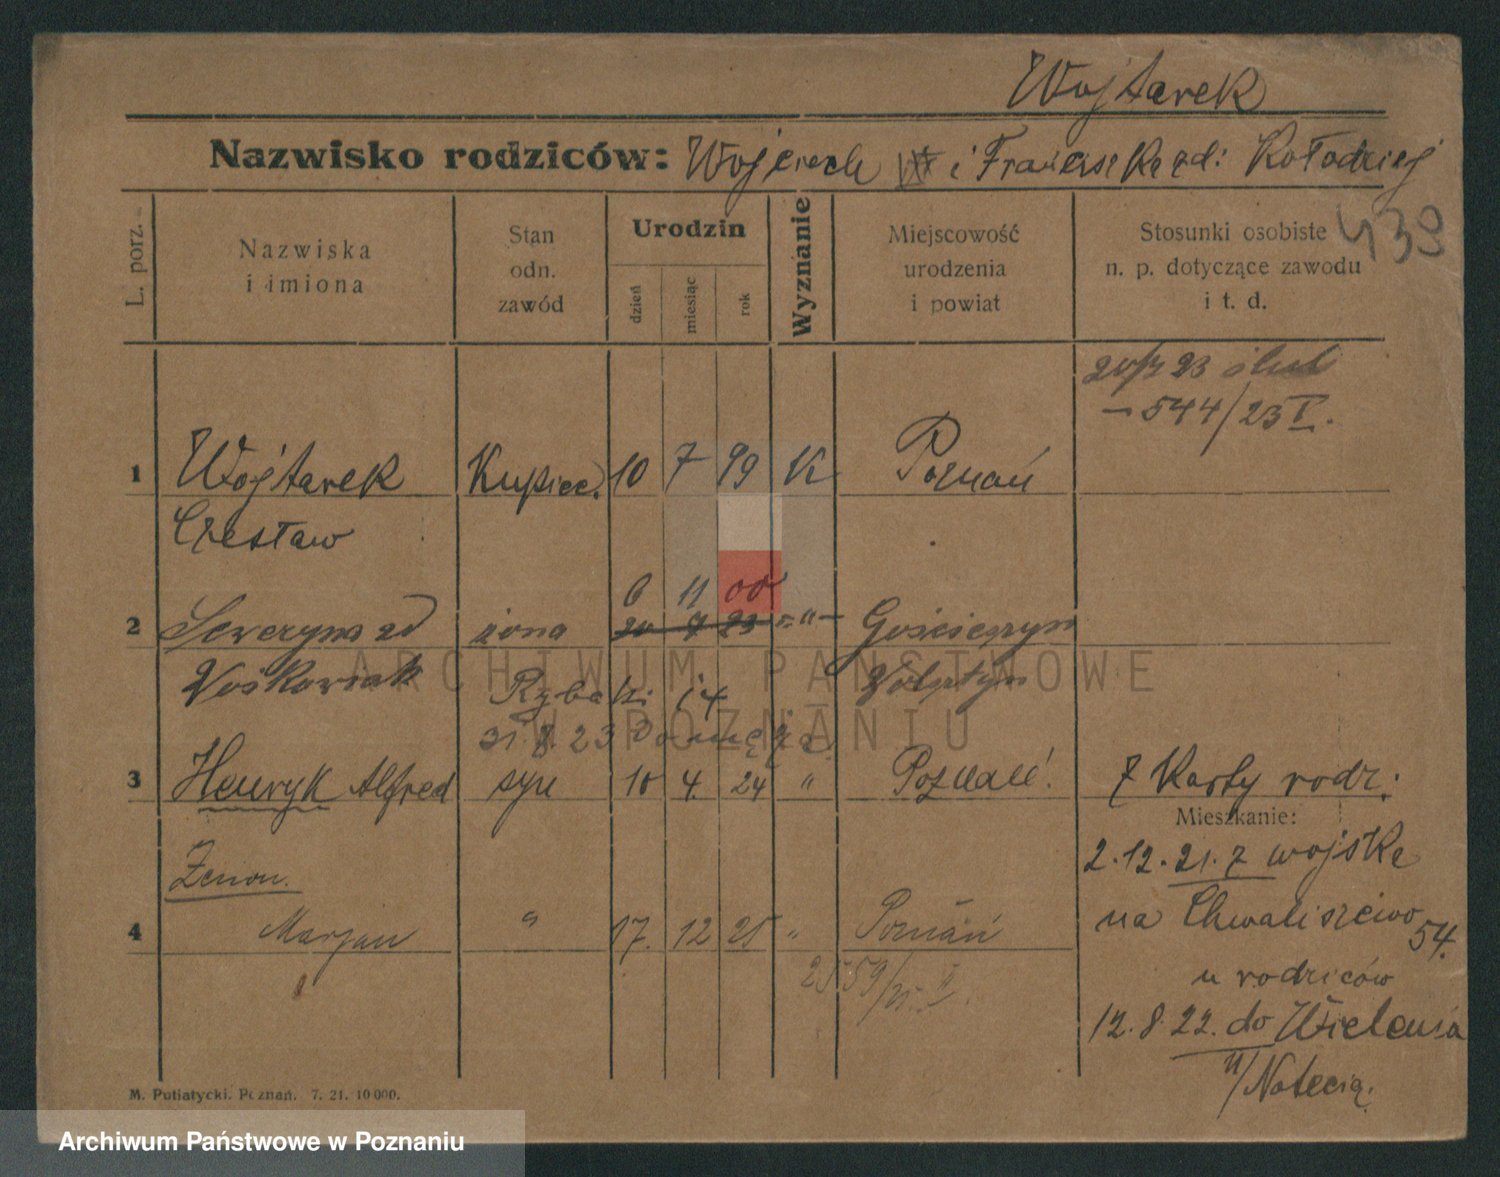 Wojtarek
Nazwisko rodziców: Wojciech i Franciszka zd: Kołodziej
439
L. porz.
Nazwiska
i imiona
Stan
odn.
zawód
Urodzin
dzień
miesiąc
rok
Wyznanie
Miejscowość
urodzenia
i powiat
Stosunki osobiste
n. p. dotyczące zawodu
i t. d.
23 ślub
544/23 V.
1 Wojtarek Kupiec. 10 7 99 K Poznań
Czesław
6 11 00
2 Seweryna zd żona 20 7 23 -"-
Rybaki 14
31.8.23 Do męża
3 Henryk Alfred syn 10 4 24 " Poznań!
z Karty rodz:
Mieszkanie:
2.12.21. z wojska
na Chwaliszewo
54.
u rodziców
12.8.22. do Wielenia
n/Notecią.
Zenon.
4 Marjan " 17. 12 25 " Poznań
2559/25
M. Putiatycki. Poznań. 7. 21. 10 000.
ARCHIWUM PAŃSTWOWE
W POZNANIU
Archiwum Państwowe w Poznaniu